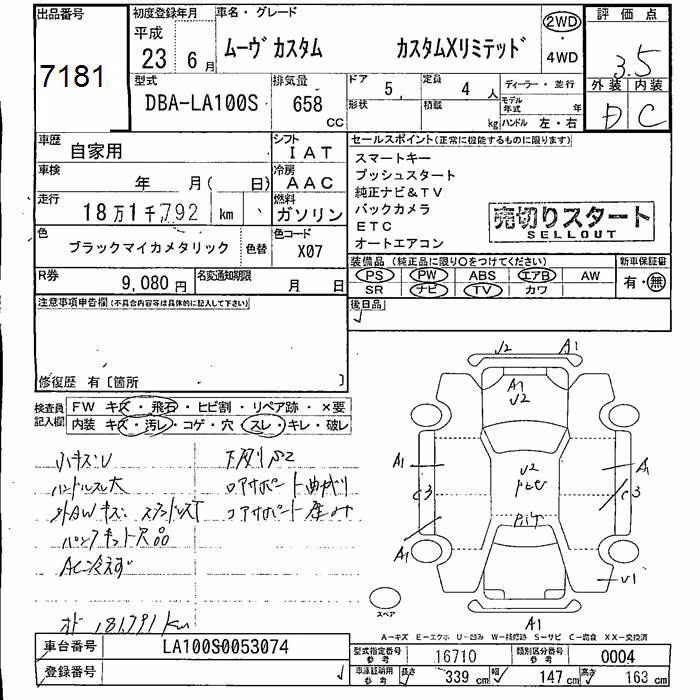 出品番号
7181
初度登録年月
平成
23年 6月
車名・グレード
ムーヴ カスタム カスタムXリミテッド
2WD
・
4WD
評価点
3.5
外装 内装
D C
型式
DBA-LA100S
排気量
658
CC
ドア 5
形状
定員 4 人
積載 kg
ディーラー・並行
モデル年式 年
ハンドル 左・右
車歴
自家用
シフト
IAT
車検
年 月( 日)
冷房
AAC
走行
18万1千792 km
燃料
ガソリン
色
ブラックマイカメタリック
色替
色コード
X07
R券
9,080円
名変通知期限
月 日
セールスポイント(正常に機能するものに限ります)
スマートキー
プッシュスタート
純正ナビ&TV
バックカメラ
ETC
オートエアコン
売切りスタート
SELLOUT
装備品 (純正品に限り○をつけてください)
PS PW ABS エアB AW
SR ナビ TV カワ
新車保証書
有・無
後日品
注意事項申告欄(不具合内容等は具体的に記入して下さい)
修復歴 有〔箇所 〕
検査員
記入欄
FW キズ・飛石・ヒビ割・リペア跡・×要
内装 キズ・汚レ・コゲ・穴・スレ・キレ・破レ
小キズU
ハンドルスレ大
パンクキット欠品
AC冷えず
下廻りS2
コアサポート曲がり
オド 181,791 km
U2 A1
A1
U2
A1
C3
A1
U2
A1
C3
U1
A1
スペア
A-キズ E-エクボ U-凹み W-補修跡 S-サビ C-腐食 XX-交換済
車台番号
LA100S0053074
登録番号
型式指定番号
参考
16710
類別区分番号
参考
0004
車庫証明用
参考
長さ 339 cm
幅 147 cm
高さ 163 cm